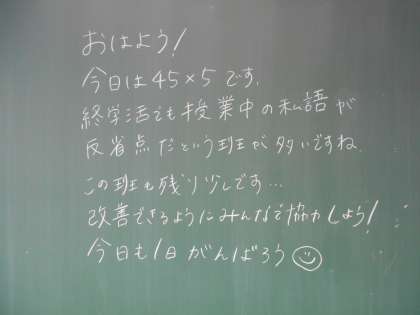 おはよう!
今日は45×5です.
終学活でも授業中の私語が
反省点だという班が多いですね.
この班も残り少しです…
改善できるようにみんなで協力しよう!
今日も1日がんばろう☺